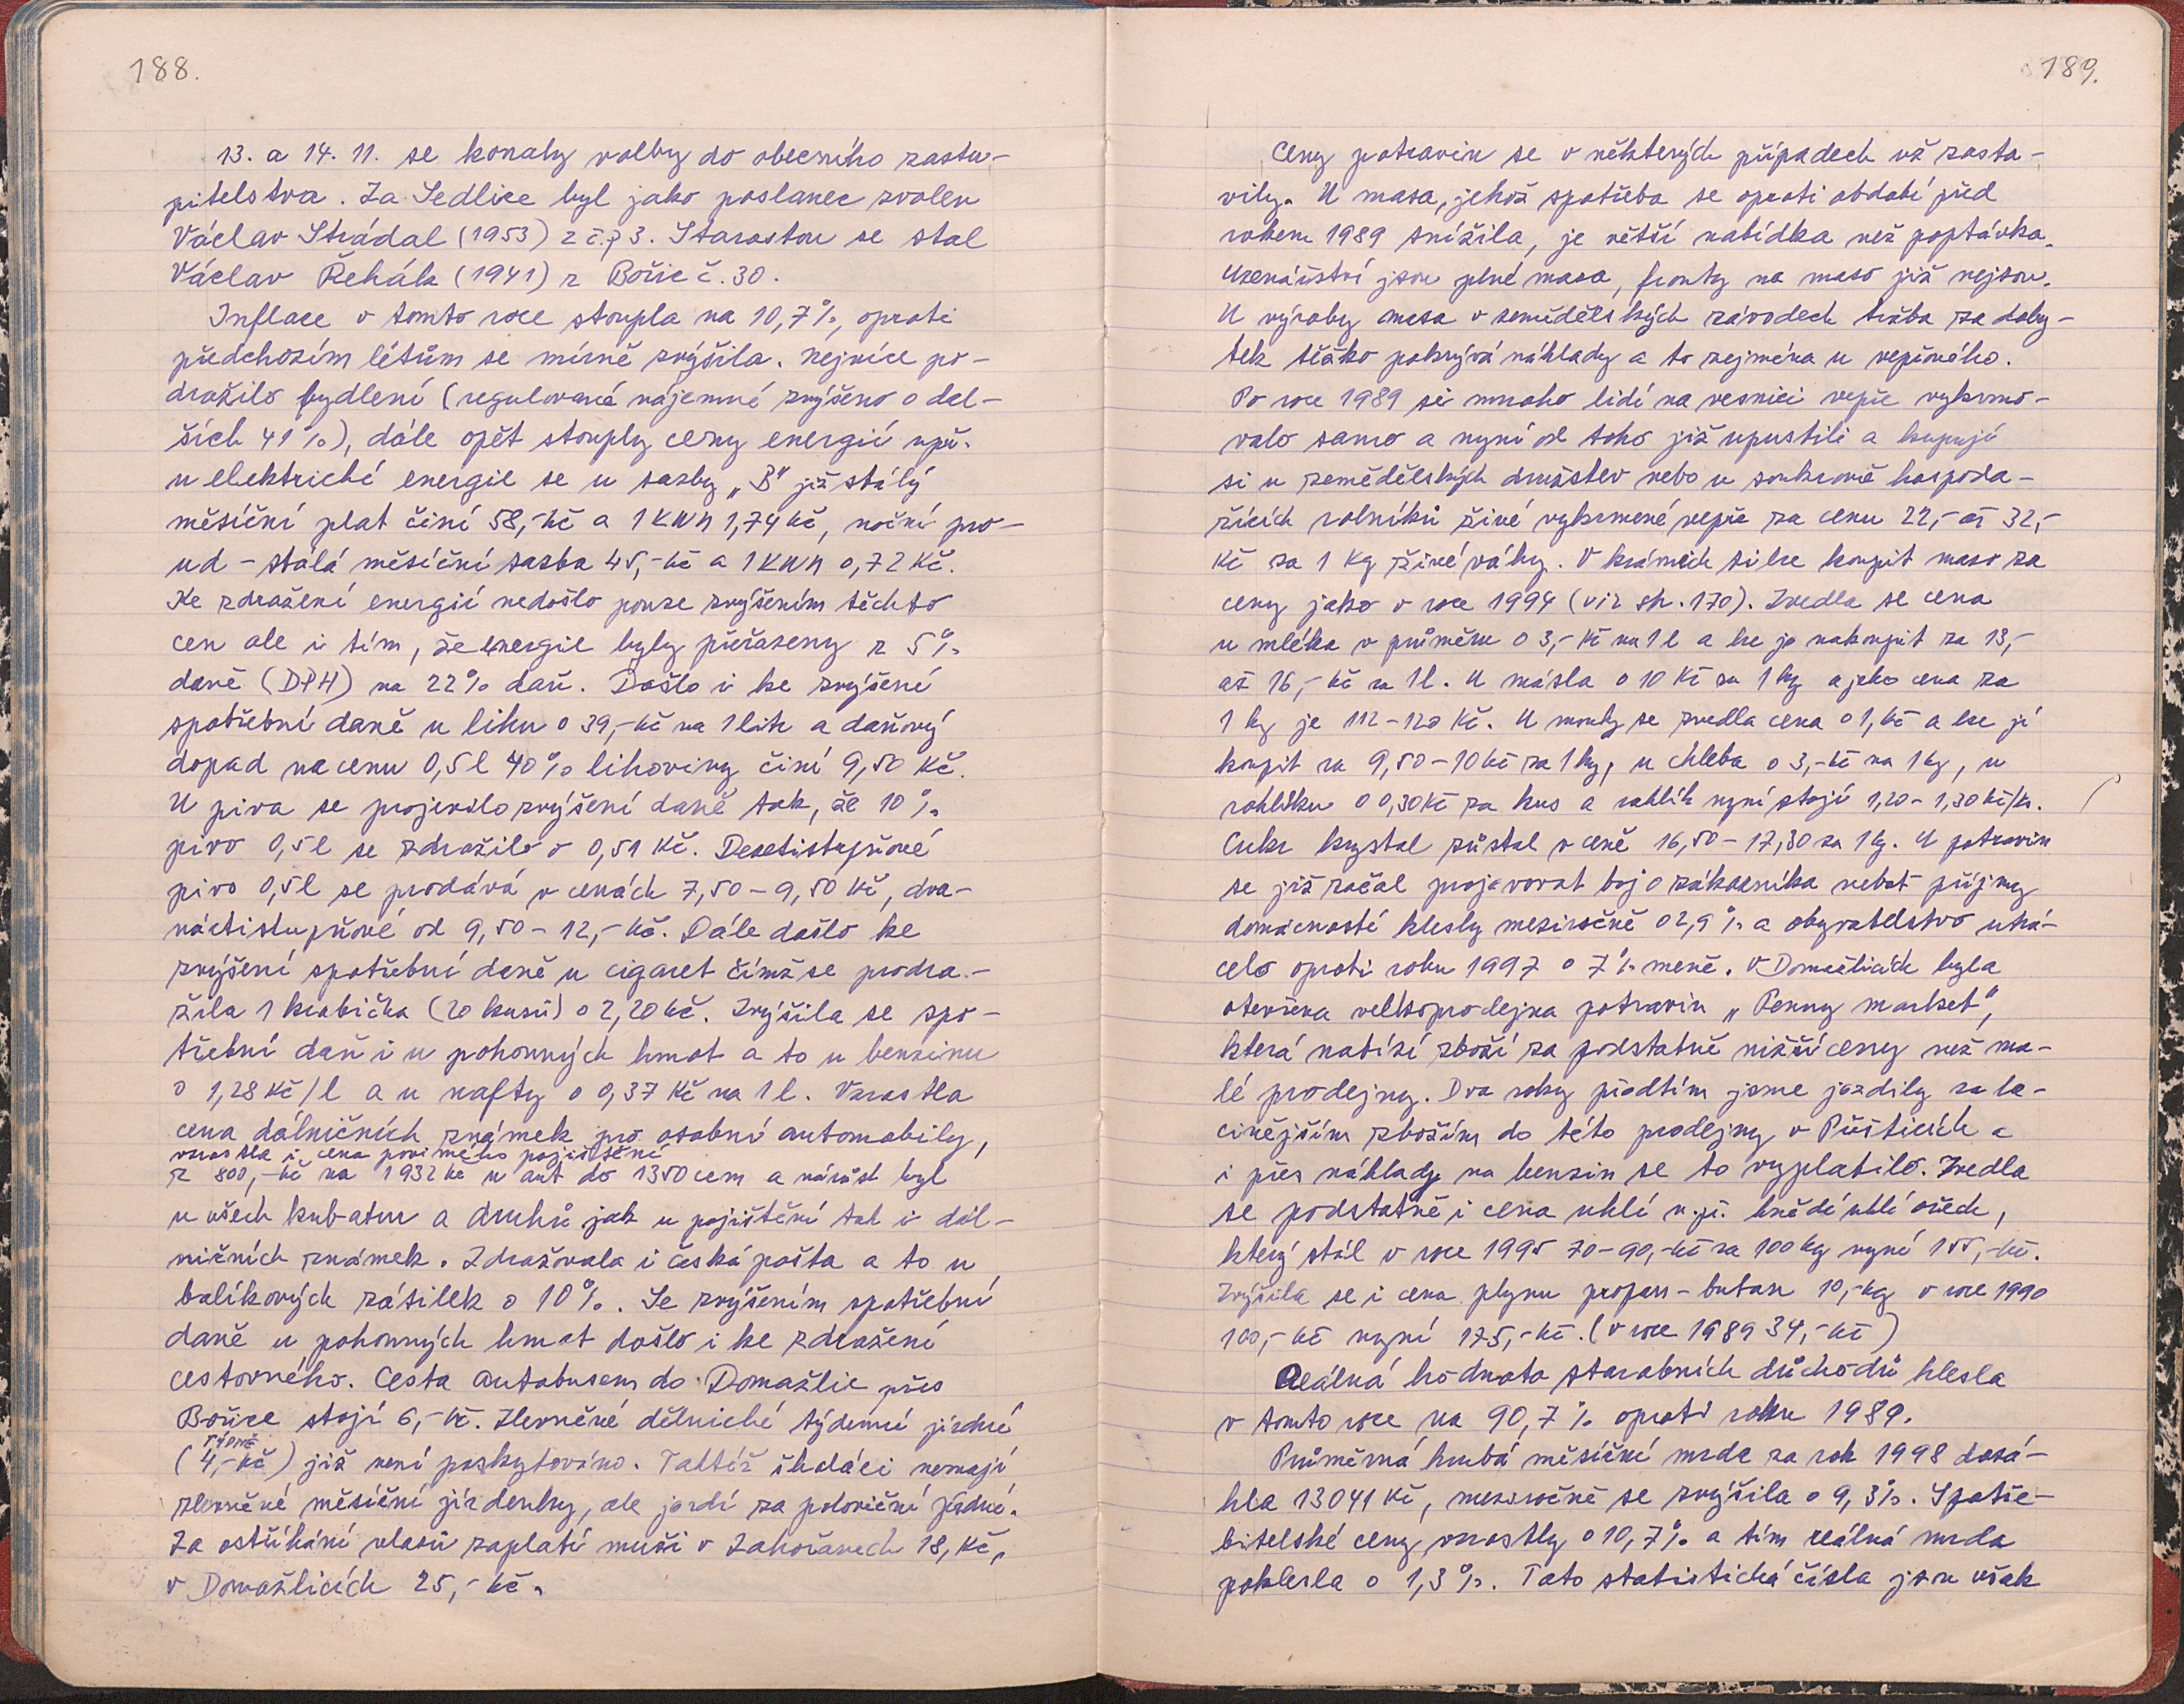 188.
13. a 14. 11. se konaly volby do obecního zastu-
pitelstva. Za Sedlice byl jako poslanec zvolen
Václav Strádal (1953) z č.p 3. Starostou se stal
Václav Řehák (1941) z Bořic č. 30.
Inflace v tomto roce stoupla na 10,7%, oproti
předchozím létům se mírně zvýšila. Nejvíce po-
dražilo bydlení (regulované nájemné zvýšeno o dal-
ších 41%), dále opět stouply ceny energií např.
u elektrické energie se u sazby „B" již stálý
měsíční plat činí 58,-Kč a 1 KWh 1,74 Kč, noční pro-
ud - stálá měsíční sazba 45,-Kč a 1 KWh 0,72 Kč.
Ke zdražení energií nedošlo pouze zvýšením těchto
cen ale i tím, že energie byly přeřazeny z 5%
daně (DPH) na 22% daň. Došlo i ke zvýšení
spotřební daně u lihu o 39,-Kč na 1 litr a daňový
dopad na cenu 0,5l 40% lihoviny činí 9,50 Kč.
U piva se projevilo zvýšení daně tak, že 10%
pivo 0,5l se zdražilo o 0,51 Kč. Desetistupňové
pivo 0,5l se prodává v cenách 7,50 - 9,50 Kč, dva-
náctistupňové od 9,50 - 12,-Kč. Dále došlo ke
zvýšení spotřební daně u cigaret čímž se prodra-
žila 1 krabička (20 kusů) o 2,20 Kč. Zvýšila se spo-
třební daň i u pohonných hmot a to u benzinu
o 1,28 Kč/l a u nafty o 0,37 Kč na 1 l. Vzrostla
cena dálničních známek pro osobní automobily,
vzrostla i cena povinného pojištění
z 800,-Kč na 1932 Kč u aut do 1350 ccm a nárůst byl
u všech kubatur a druhů jak u pojištění tak i dál-
ničních známek. Zdražovala i česká pošta a to u
balíkových zásilek o 10%. Se zvýšením spotřební
daně u pohonných hmot došlo i ke zdražení
cestovného. Cesta autobusem do Domažlic přes
Bořice stojí 6,-Kč. Zlevněné dělnické týdenní jízdné
týdně
(4,-Kč) již není poskytováno. Taktéž školáci nemají
zlevněné měsíční jízdenky, ale jezdí za poloviční jízdné.
Za ostříhání vlasů zaplatí muži v Zahořanech 18, Kč,
v Domažlicích 25,-Kč.
189.
Ceny potravin se v některých případech už zasta-
vily. U masa, jehož spotřeba se oproti období před
rokem 1989 snížila, je větší nabídka než poptávka.
Uzenářství jsou plné masa, fronty na maso již nejsou.
U výroby masa v zemědělských závodech tržba za doby-
tek těžko pokrývá náklady a to zejména u vepřového.
Po roce 1989 si mnoho lidí na vesnici vepře vykrmo-
valo samo a nyní od toho již upustili a kupují
si u zemědělských družstev nebo u soukromě hospoda-
řících rolníků živé vykrmené vepře za cenu 22,- až 32,-
Kč za 1 Kg živé váhy. V krámech si lze koupit maso za
ceny jako v roce 1994 (viz str. 170). Zvedla se cena
u mléka v průměru o 3,-Kč na 1 l a lze jo nakoupit za 13,-
až 16,-Kč za 1l. U másla o 10 Kč za 1 kg a jeho cena za
1 kg je 112-120 Kč. U mouky se zvedla cena o 1,Kč a lze jí
koupit za 9,50-10 Kč za 1 kg, u chleba o 3,-Kč na 1 kg, u
rohlíku o 0,30 Kč za kus a rohlík nyní stojí 1,20-1,30 Kč/ks.
Cukr krystal zůstal v ceně 16,50-17,30 za 1 kg. U potravin
se již začal projevovat boj o zákazníka neboť příjmy
domácností klesly meziročně o 2,9% a obyvatelstvo utrá-
celo oproti roku 1997 o 7% méně. V Domažlicích byla
otevřena velkoprodejna potravin „Penny market",
která nabízí zboží za podstatně nižší ceny než ma-
lé prodejny. Dva roky předtím jsme jezdily za la-
cinějším zbožím do této prodejny v Přešticích a
i přes náklady na benzin se to vyplatilo. Zvedla
se podstatně i cena uhlí n.př. hnědé uhlí ořech,
který stál v roce 1995 70-90,-Kč za 100 kg nyní 155,-Kč.
Zvýšila se i cena plynu propan-butan 10,-kg v roce 1990
100,-Kč nyní 175,-Kč. (v roce 1989 34,-Kč)
Reálná hodnota starobních důchodů klesla
v tomto roce na 90,7% oproti roku 1989.
Průměrná hrubá měsíční mzda za rok 1998 dosá-
hla 13041 Kč, meziročně se zvýšila o 9,3%. Spotře-
bitelské ceny vzrostly o 10,7% a tím reálná mzda
poklesla o 1,3%. Tato statistická čísla jsou však